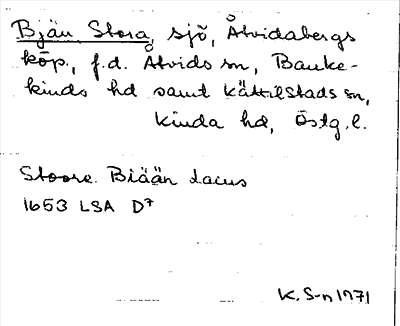 Bjän, Stora, sjö, Åtvidabergs
köp., f.d. Åtvids sn, Banke-
kinds hd samt Kättilstads sn,
Kinda hd, Östg.l.
Stoore Biään Lacus
1653 LSA D7
K. S-n 1971